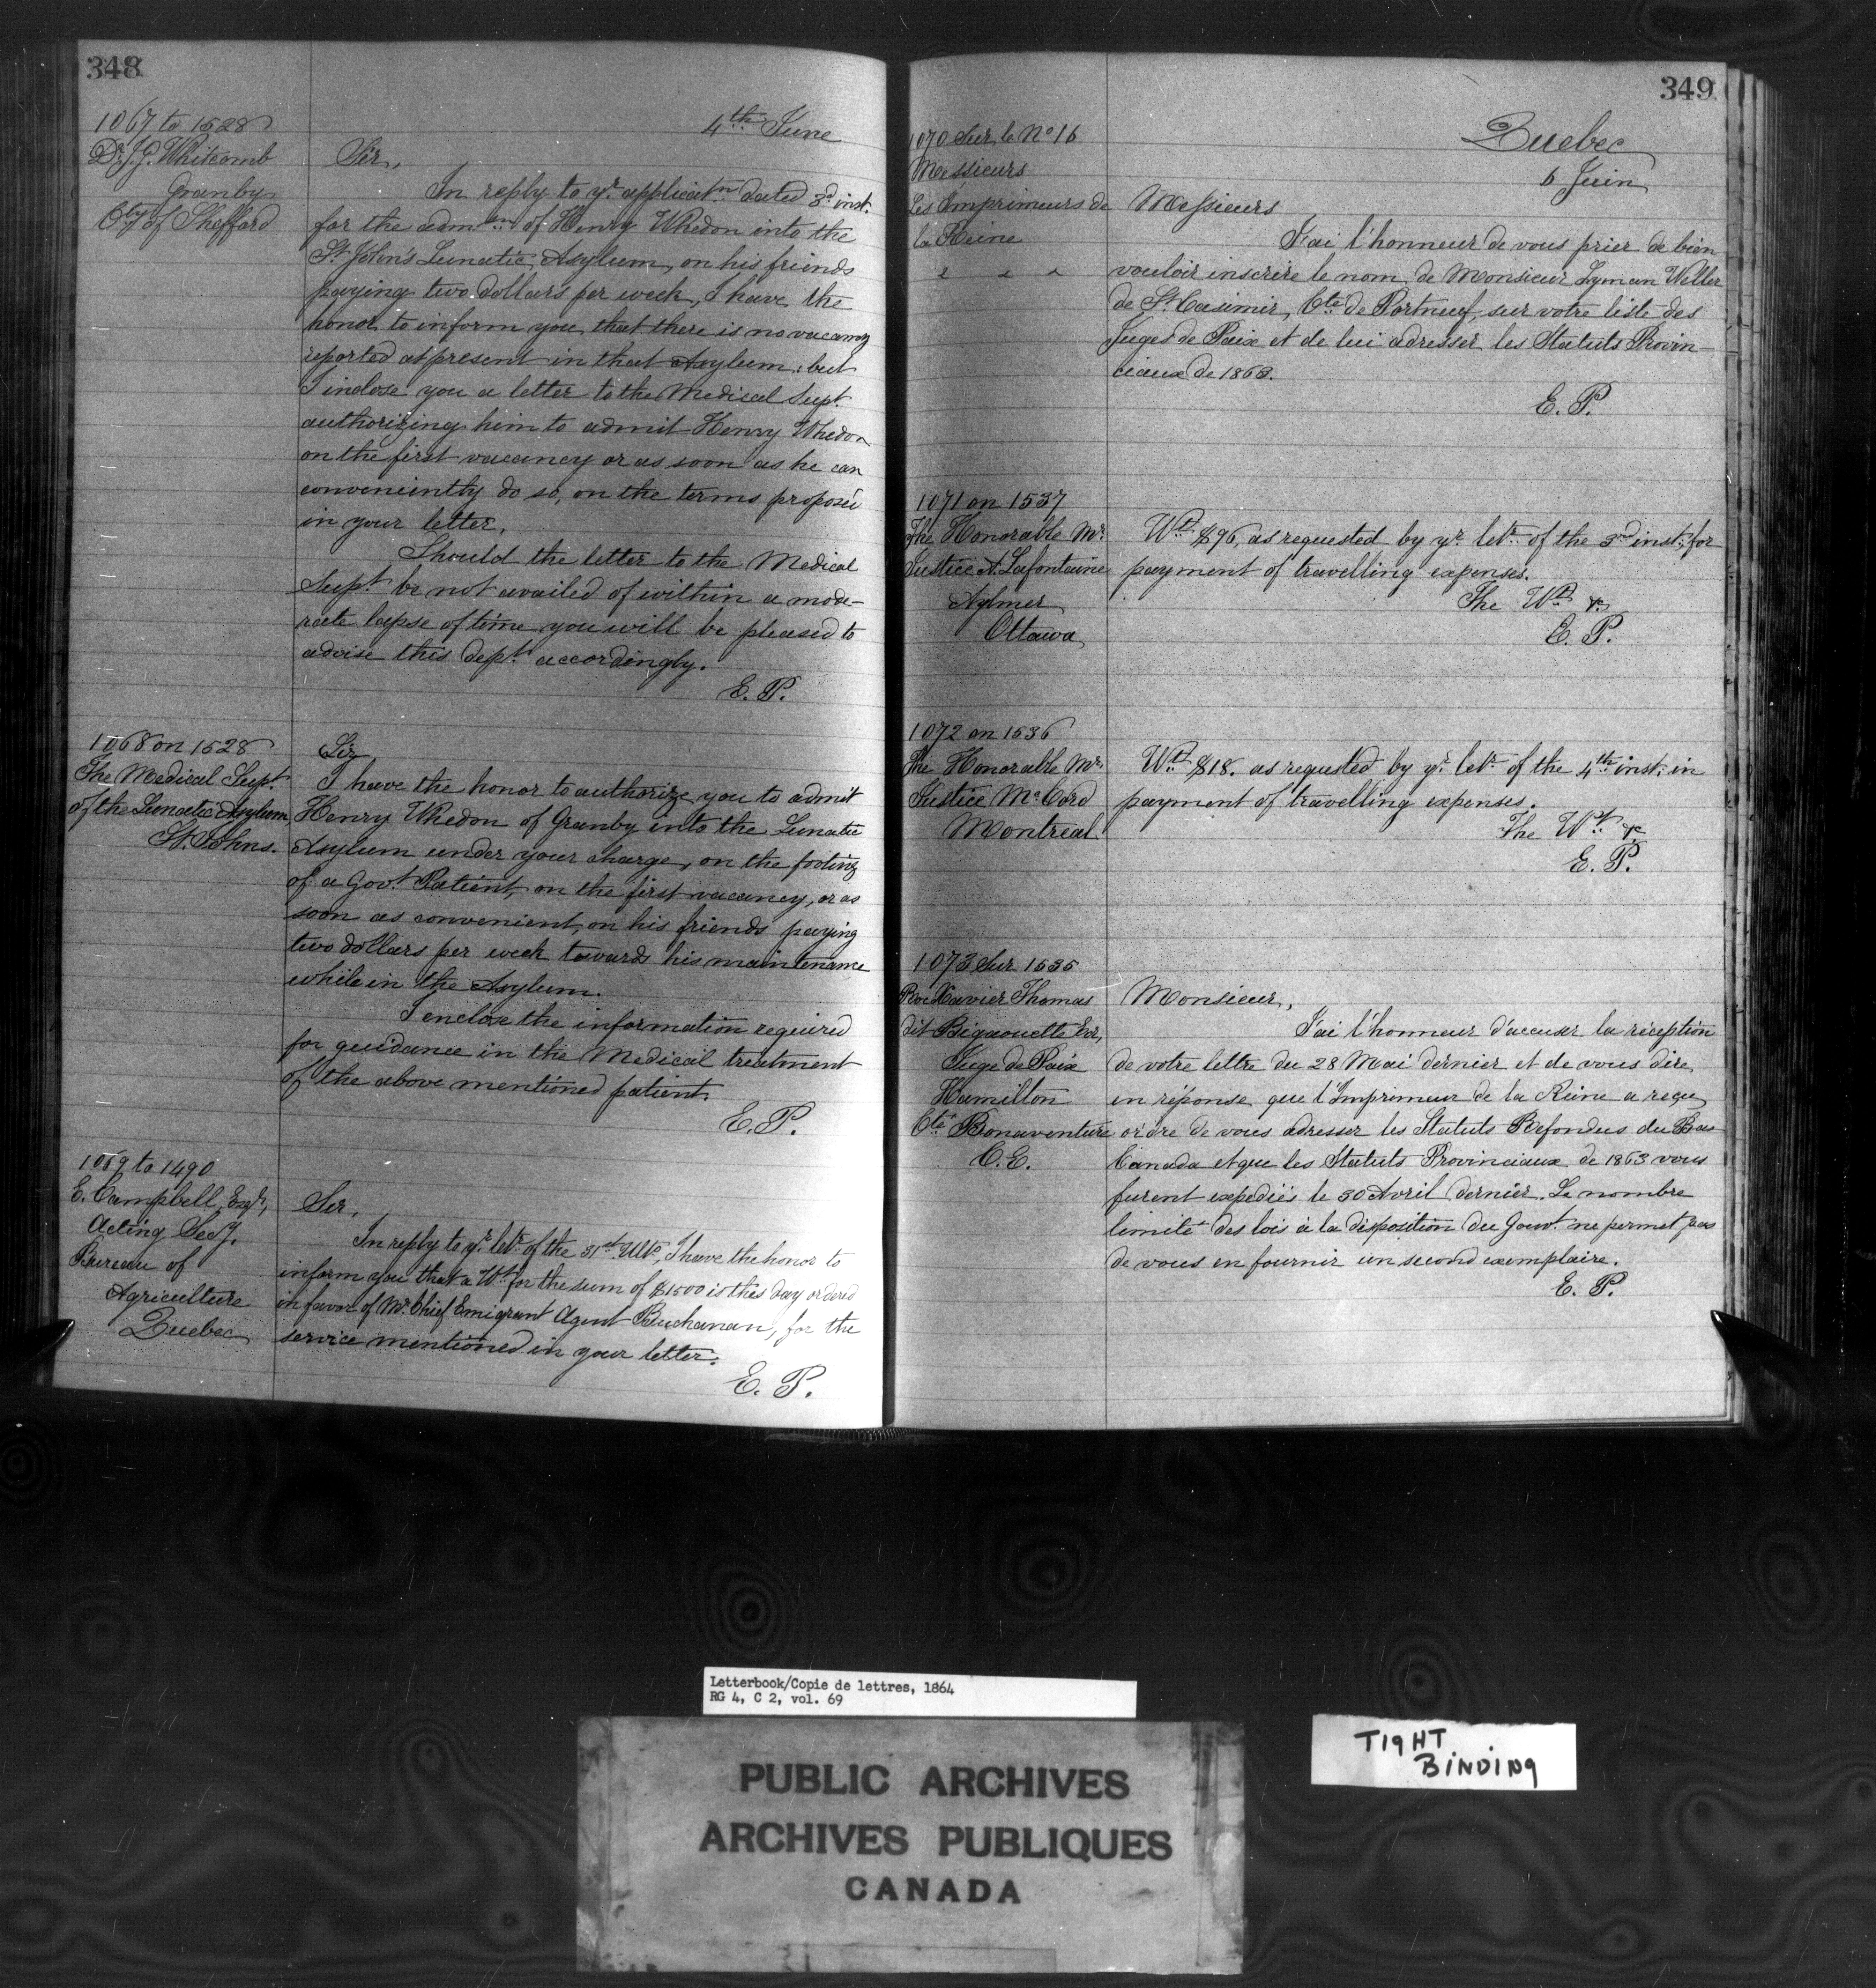 348
4th June
1067 to 1528
Dr. J. G. Whitcomb
Granby
Cty of Shefford
Sir,
In reply to yr. applicatn dated 3d inst.
for the admn of Henry Whedon into the
St. John's Lunatic Asylum, on his friends
paying two dollars per week, I have the
honor to inform you that there is no vacancy
reported at present in that Asylum; but
I inclose you a letter to the Medical Supt.
authorizing him to admit Henry Whedon
on the first vacancy or as soon as he can
conveniently do so, on the terms proposed
in your letter.
Should the letter to the Medical
Supt. be not availed of within a mode-
rate lapse of time you will be pleased to
advise this dept. accordingly.
E. P.
1068 on 1528
The Medical Supt.
of the Lunatic Asylum
St. Johns.
Sir
I have the honor to authorize you to admit
Henry Whedon of Granby into the Lunatic
Asylum under your charge, on the footing
of a Govt. Patient, on the first vacancy, or as
soon as convenient, on his friends paying
two dollars per week towards his maintenance
while in the Asylum.
I enclose the information required
for guidance in the Medical treatment
of the above mentioned patient.
E. P.
1069 to 1490
E. Campbell, Esqr,
Acting Secy.
Bureau of
Agriculture
Quebec
Sir,
In reply to yr. letr. of the 31st Ulto, I have the honor to
inform you that a Wt. for the sum of $1500 is this day ordered
in favor of Mr. Chief Emigrant Agent Buchanan, for the
service mentioned in your letter.
E. P.
349
Quebec
6 Juin
1070 Sur le No 16
Messieurs
Les Imprimeurs de
la Reine
Messieurs
J'ai l'honneur de vous prier de bien
vouloir inscrire le nom de Monsieur Lyman Weller
de St. Casimir, Cté de Portneuf, sur votre liste des
Juges de Paix et de lui adresser les Statuts Provin-
ciaux de 1863.
E. P.
1071 on 1537
The Honorable Mr.
Justice A. Lafontaine
Aylmer
Ottawa
Wt. $96, as requested by yr. letr. of the 3rd inst; for
payment of travelling expenses.
The Wt. &c
E. P.
1072 on 1536
The Honorable Mr.
Justice McCord
Montreal
Wt. $18. as requested by yr. letr. of the 4th inst; in
payment of travelling expenses.
The Wt. &c
E. P.
1073 Sur 1535
Xavier Thomas
dit Bigaouette Ecr,
Juge de Paix
Hamilton
Cté Bonaventure
C. E.
Monsieur,
J'ai l'honneur d'accuser la réception
de votre lettre du 28 Mai dernier et de vous dire,
en réponse que l'Imprimeur de la Reine a reçu
ordre de vous adresser les Statuts Refondus du Bas
Canada et que les Statuts Provinciaux de 1863 vous
furent expediés le 30 Avril dernier. Le nombre
limité des lois à la disposition du Gouvt. ne permet pas
de vous en fournir un second exemplaire.
E. P.
Letterbook/Copie de lettres, 1864
RG 4, C 2, vol. 69
PUBLIC ARCHIVES
ARCHIVES PUBLIQUES
CANADA
TIGHT
BINDING